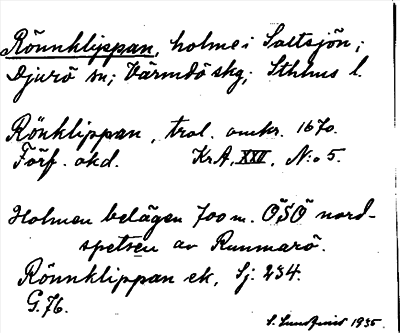 Rönnklippan, holme i Saltsjön;
Djurö sn; Värmdö skg; Sthlms l.
Rönklippan, trol. omkr. 1670.
Förf. okd. KrA, XXII, N:o 5.
Holmen belägen 700 m. ÖSÖ nord-
spetsen av Runmarö.
Rönnklippan ek, Sj: 234.
G.76.
1935.